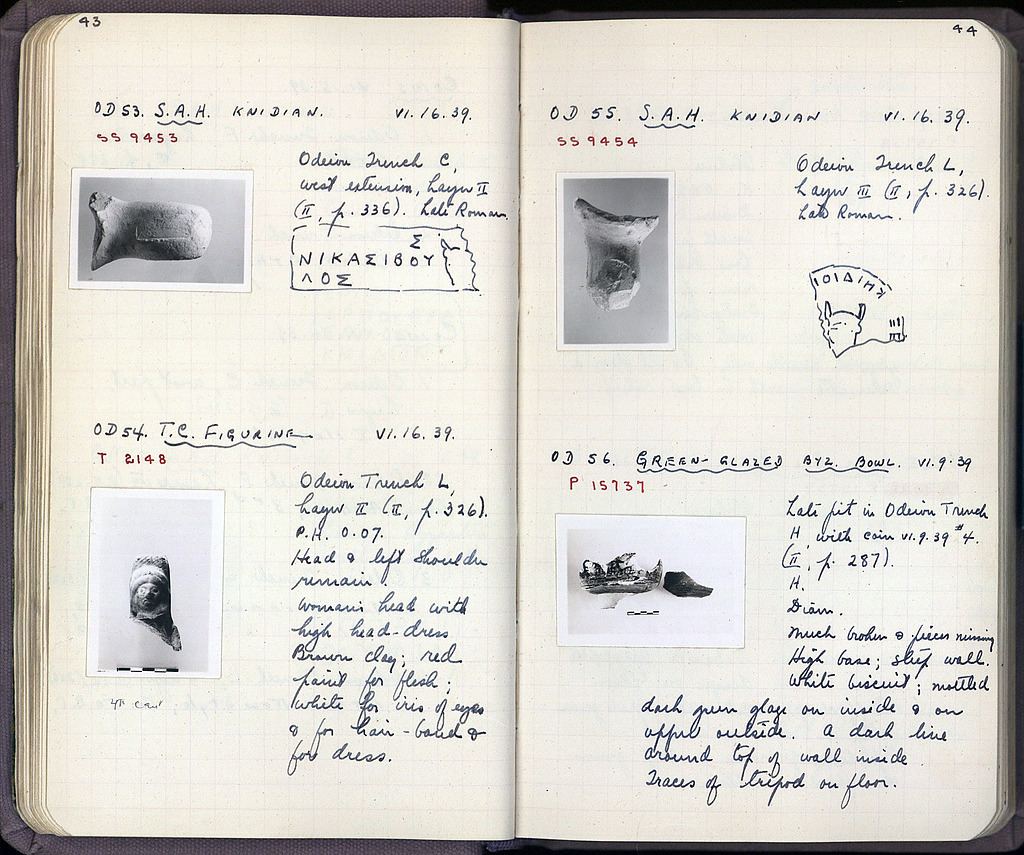 43
OD 53. S.A.H. KNIDIAN. VI.16.39.
SS 9453
Odeion Trench C,
west extension, Layer II
(II, p. 336). Late Roman.
Σ
ΝΙΚΑΣΙΒΟΥ
ΛΟΣ
OD 54. T.C. FIGURINE VI.16.39.
T 2148
Odeion Trench L,
Layer II (II, p. 326).
P.H. 0.07.
Head & left shoulder
remain.
Woman's head with
high head-dress
Brown clay; red
paint for flesh;
white for iris of eyes
& for hair-band &
for dress.
4th cent
44
OD 55. S.A.H. KNIDIAN VI.16.39.
SS 9454
Odeion Trench L,
Layer III (II, p. 326).
Late Roman.
ΚΝΙΔΙΟΙ
OD 56. GREEN-GLAZED BYZ. BOWL. VI.9.39
P 15737
Late pit in Odeion Trench
H, with coin VI.9.39 #4.
(II, p. 287).
H.
Diam.
Much broken & pieces missing
High base; steep wall.
White biscuit; mottled
dark green glaze on inside & on
upper outside. A dark line
around top of wall inside.
Traces of tripod on floor.